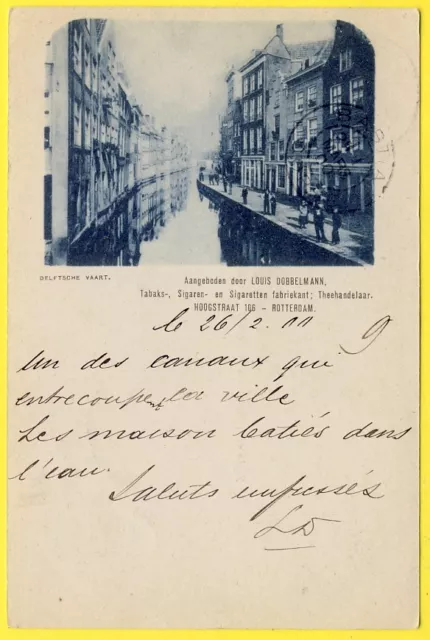 DELFTSCHE VAART.
Aangeboden door LOUIS DOBBELMANN,
Tabaks-, Sigaren- en Sigaretten fabriekant; Theehandelaar.
HOOGSTRAAT 106 - ROTTERDAM.
le 26/2.
Un des canaux qui
entrecoupent la ville
Les maison baties dans
l'eau.
Saluts empressés
LD